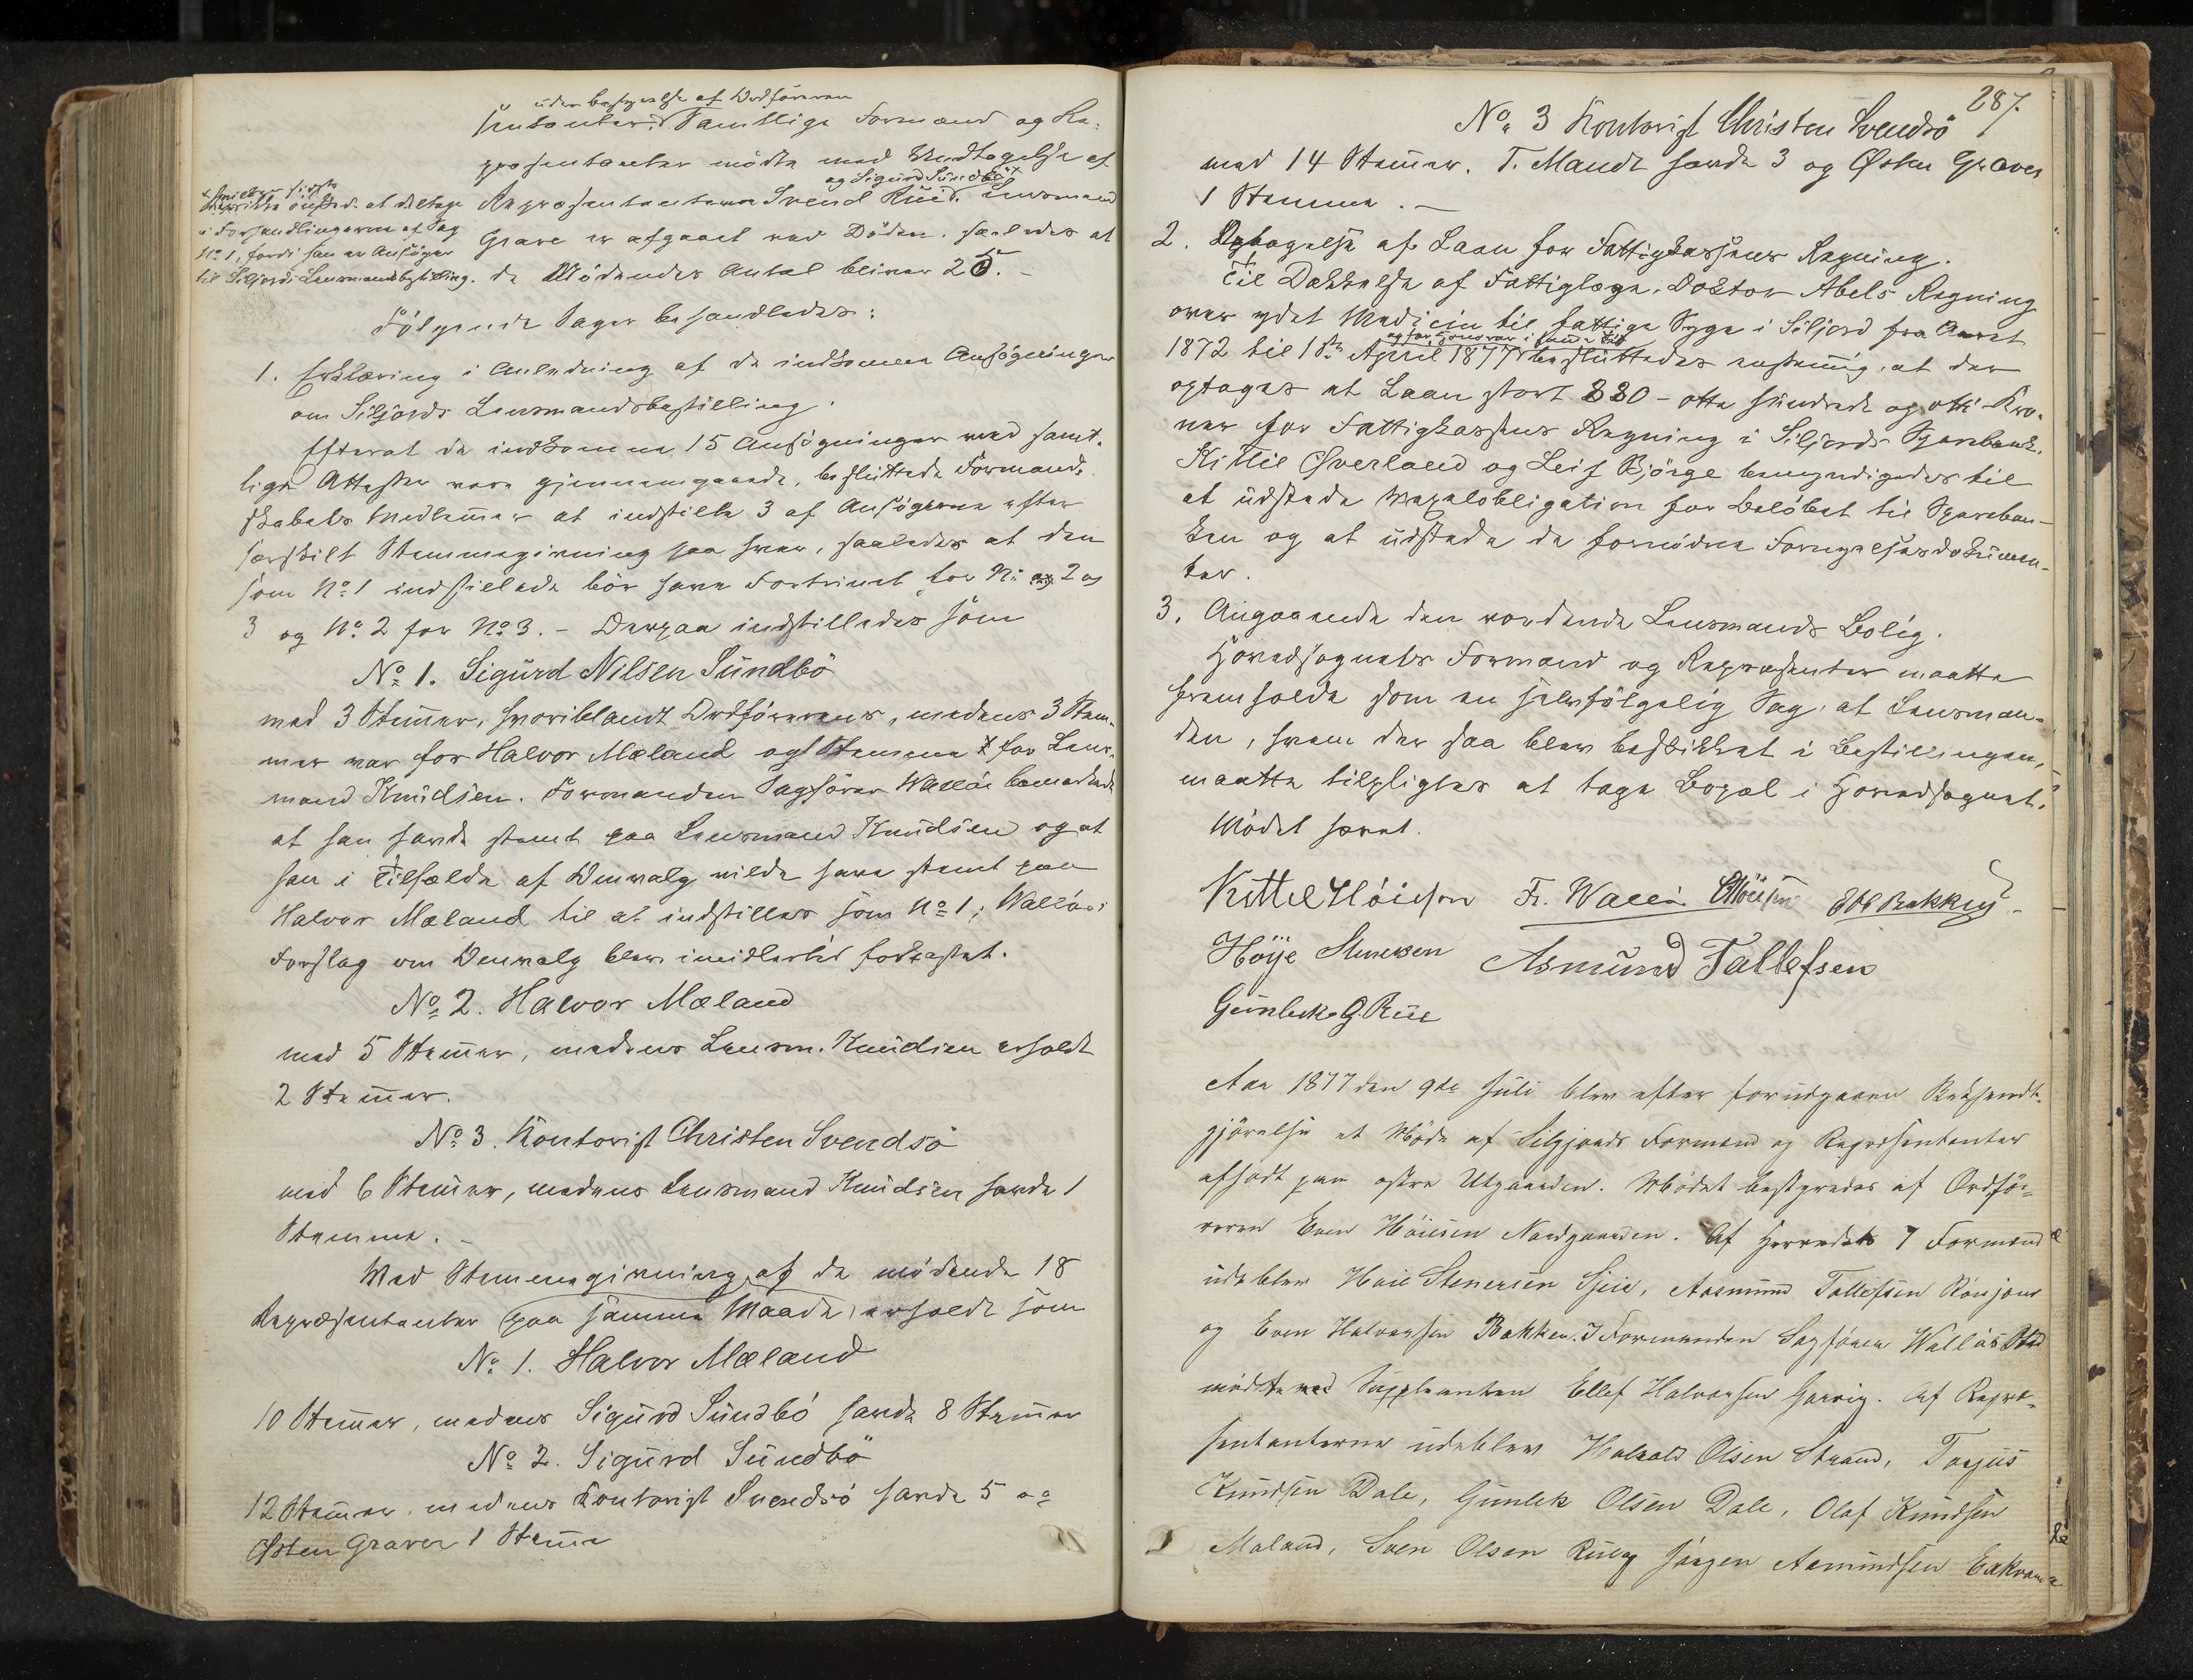 under bestyrelse af Ordføreren
sentanter. Samtlige Formænd og Re-
præsentanter mødte med Undtagelse af
og Sigurd Sundbø x
Repræsentanterne Svend Rui. Lensmand
Grave er afgaaet ved Døden. saaledes at
de Mødendes Antal bliver 25.
x hvilken sidste
ikke ønskede at deltage
i Forhandlingerne af Sag
No 1, fordi han er Ansøger
til Siljords Lensmandsbestilling.
Følgende Sager behandledes:
1. Erklæring i Anledning af de indkomne Ansøgninger
om Siljords Lensmandsbestilling.
Efterat de indkomne 15 Ansøgninger med samt-
lige Attester vare gjennemgaaede, besluttede Formand-
skabets Medlemer at indstille 3 af Ansøgerne efter
særskilt Stemmegivning paa hver, saaledes at den
som No 1 indstillede bør have Fortrinet for No 2 og
3 og No 2 for No 3. - Derpaa indstilledes som
No 1. Sigurd Nilsen Sundbö
med 3 Stemer, hvoriblandt Ordførerens, medens 3 Stem-
mer var for Halvor Mæland og 1 Stemme for Lens-
mand Knudsen. Formanden Sagfører Walløe bemærkede
at han havde stemt paa Lensmand Knudsen og at
han i Tilfælde af Omvalg vilde have stemt paa
Halvor Mæland til at indstilles som No 1; Walløes
Forslag om Omvalg blev imidlertid forkastet.
No 2. Halvor Mæland
med 5 Stemer, medens Lensm. Knudsen erholdt
2 Stemer.
No 3. Kontorist Christen Svendsö
med 6 Stemer, medens Lensmand Knudsen havde 1
Stemme. -
Ved Stemmegivning af de mødende 18
Repræsentanter (paa samme Maade) erholdt som
No 1. Halvor Mæland
10 Stemer, medens Sigurd Sundbö havde 8 Stemer
No 2. Sigurd Sundbö
12 Stemer, medens Kontorist Svendsö havde 5 og
Østen Graver 1 Steme
287.
No 3 Kontorist Christen Svendsö
med 14 Stemer. T. Mandt havde 3 og Østen Graver
1 Stemme. -
2. Optagelse af Laan for Fattigkassens Regning.
Til Dækkelse af Fattiglæge, Doktor Abels Regning
over ydet Medicin til fattige Syge i Siljord fra Aaret
og for Honorar i samme Tid
1872 til 1ste April 1877 besluttedes enstemig, at der
optages et Laan stort 880 - otte hundrede og otti - Kro-
ner for Fattigkassens Regning i Siljords Sparebank.
Kittil Øverland og Leif Bjørge bemyndigedes til
at udstede Vexelobligation for Beløbet til Spareban-
ken og at udstede de fornødne Fornyelsesdokumen-
ter.
3. Angaaende den vordende Lensmands Bolig.
Hovedsognets Formænd og Repræsenter maatte
fremholde som en selvfølgelig Sag, at Lensman-
den, hvem der saa blev beskikket i Bestillingen,
maatte tilpligtes at tage Bopæl i Hovedsognet.
Mødet hævet.
Kittel Høieson Fr. Walløe EHöisen EH Bakken
Höye Stenersen Asmund Tallefsen
Gunleik G. Rue
Aar 1877 den 9de Juli blev efter forudgaaen Bekjendt-
gjørelse et Møde af Silgjords Formænd og Repræsentanter
afholdt paa østre Utgaarden. Mødet bestyredes af Ordfø-
reren Even Höiesen Nordgaarden. Af Herredets 7 Formænd
udeblev Höie Stenersen, Aasmund Tallefsen
og Even Halvorsen Bakken. I Formanden Sagfører Walløes Sted
mødte ved Suppleanten Ellef Halvorsen Haavig. Af Repræ-
sentanterne udeblev Halvald Olsen Strand, Torjus
Knudsen Dale, Gunlek Olsen Dale, Olaf Knudsen
Mæland, Sven Olsen Rui og Jørgen Asmundsen